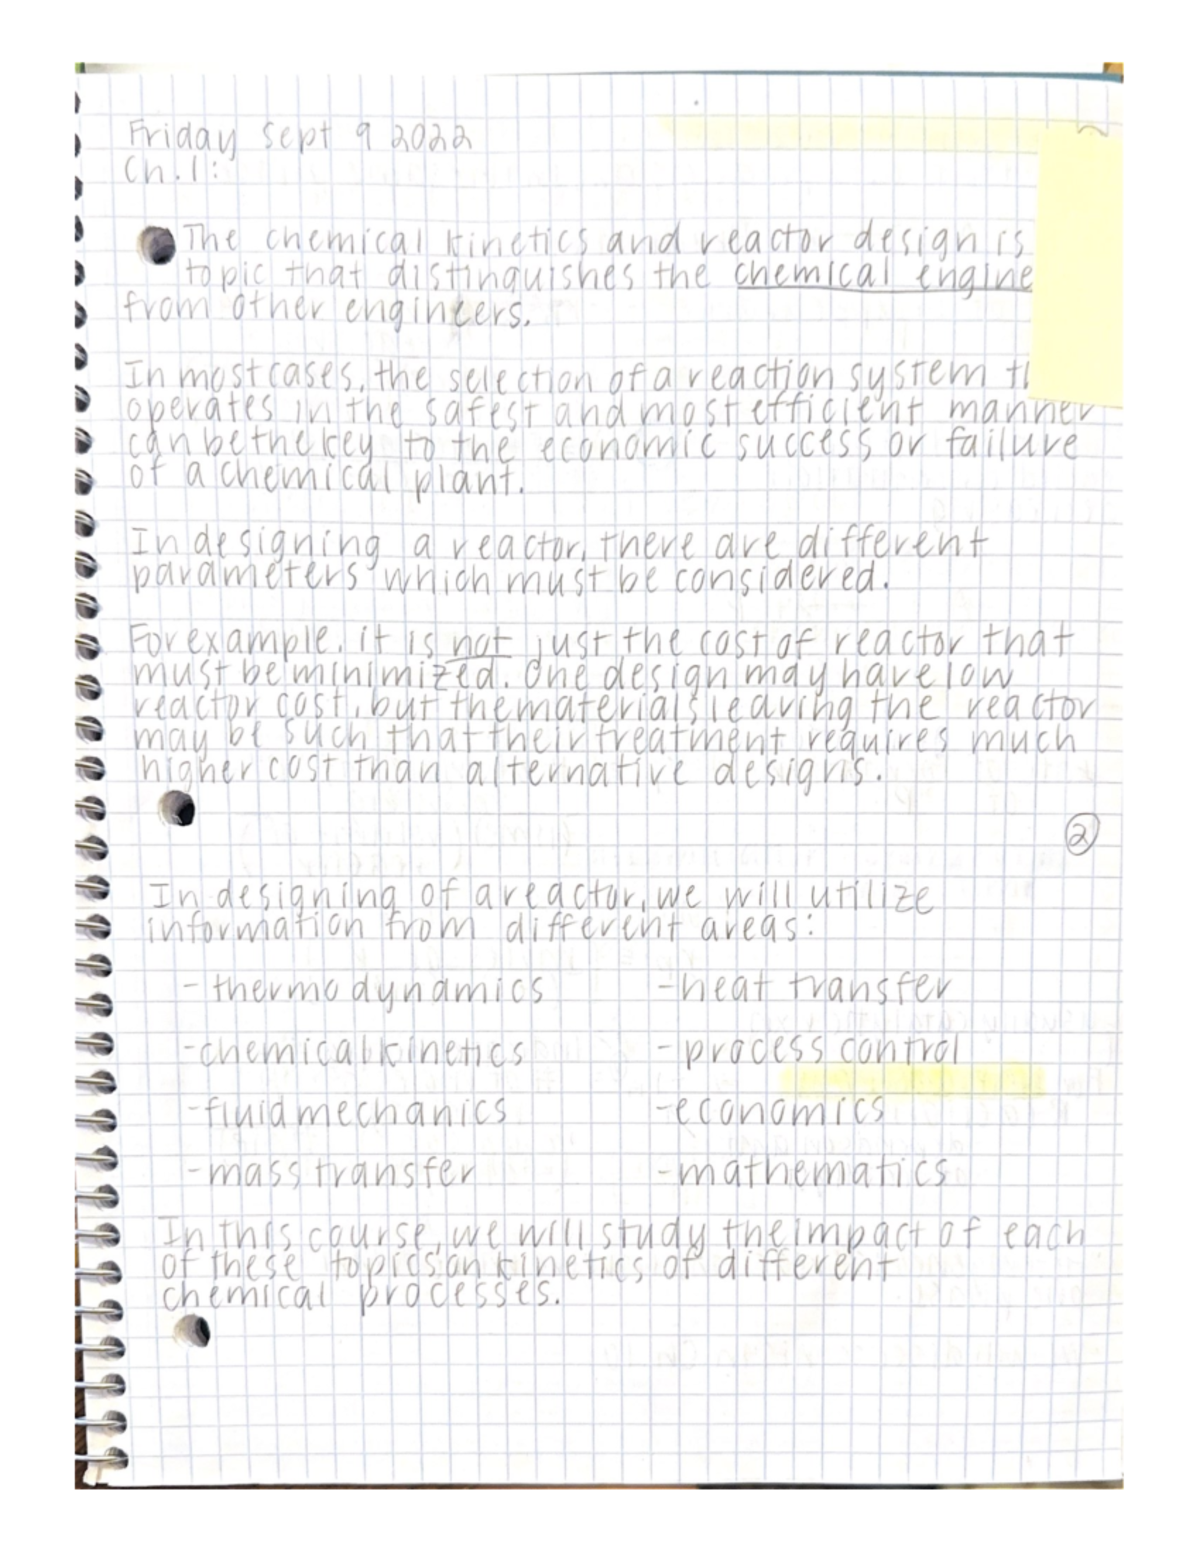 Friday Sept 9 2022
Ch.1:
The chemical kinetics and reactor design is
topic that distinguishes the chemical engine
from other engineers.
In most cases, the selection of a reaction system
operates in the safest and most efficient manner
can be the key to the economic success or failure
of a chemical plant.
In designing a reactor, there are different
parameters which must be considered.
For example, it is not just the cost of reactor that
must be minimized. One design may have low
reactor cost, but the materials leaving the reactor
may be such that their treatment requires much
higher cost than alternative designs.
2
In designing of a reactor, we will utilize
information from different areas:
- thermodynamics - heat transfer
- chemical kinetics - process control
- fluid mechanics - economics
- mass transfer - mathematics
In this course, we will study the impact of each
of these topics on kinetics of different
chemical processes.